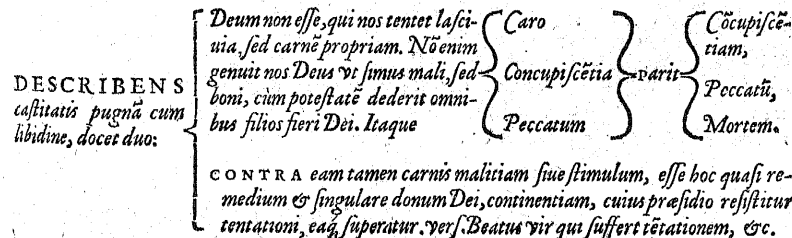 DESCRIBENS
castitatis pugnã cum
libidine, docet duo:
Deum non esse, qui nos tentet lasci-
uia, sed carnẽ propriam. Nõ enim
genuit nos Deus vt simus mali, sed
boni, cùm potestatẽ dederit omni-
bus filios fieri Dei. Itaque
Caro
Concupiscẽtia
Peccatum
parit
Cõcupiscẽ-
tiam,
Peccatũ,
Mortem.
CONTRA eam tamen carnis malitiam siue stimulum, esse hoc quasi re-
medium & singulare donum Dei, continentiam, cuius præsidio resistitur
tentationi, eaq́; superatur. vers. Beatus vir qui suffert tẽtationem, &c.